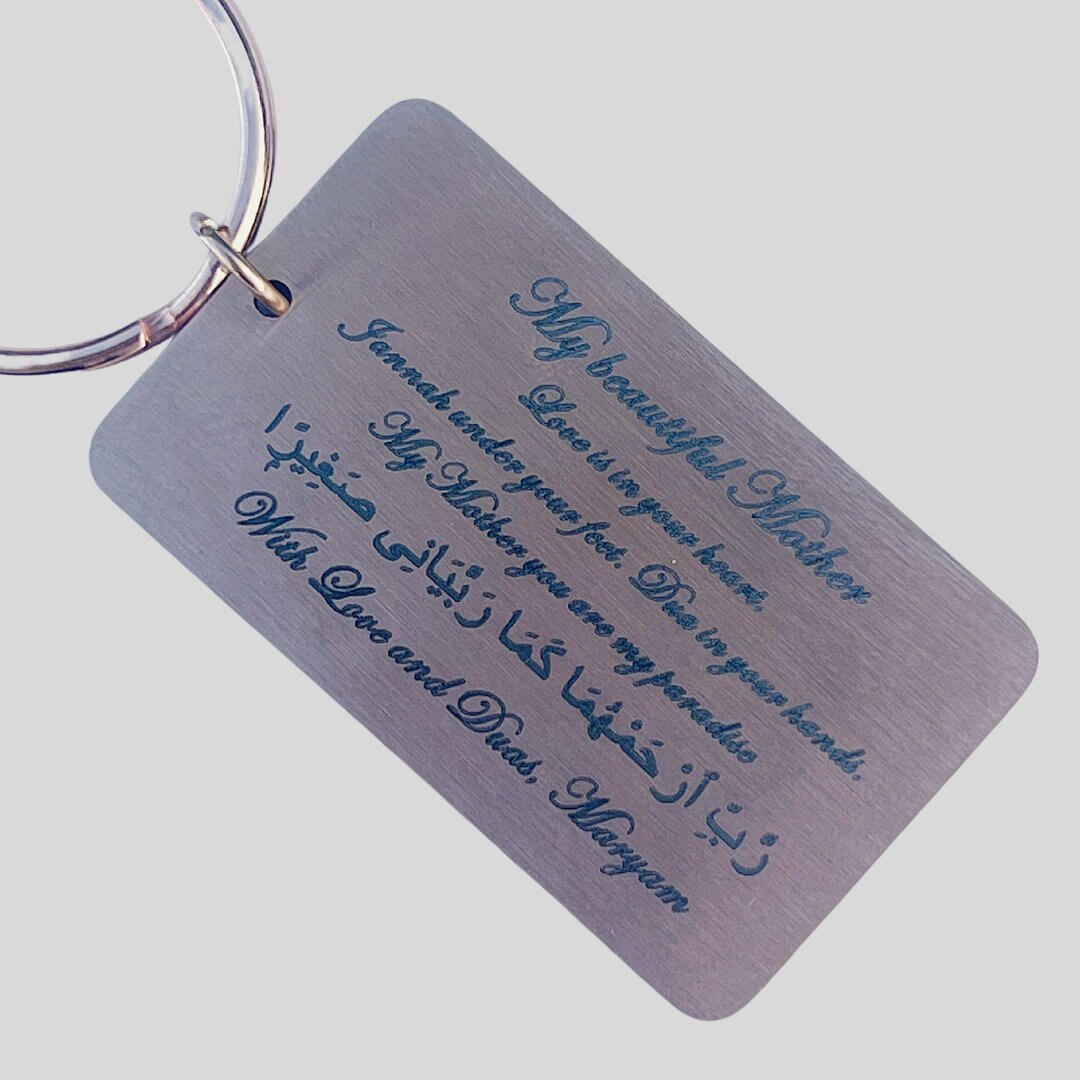 My beautiful Mother,
Love is in your heart,
Jannah under your feet. Dua in your hands,
My Mother you are my paradise
رَّبِّ ٱرْحَمْهُمَا كَمَا رَبَّيَانِى صَغِيرًا
With Love and Duas, Maryam